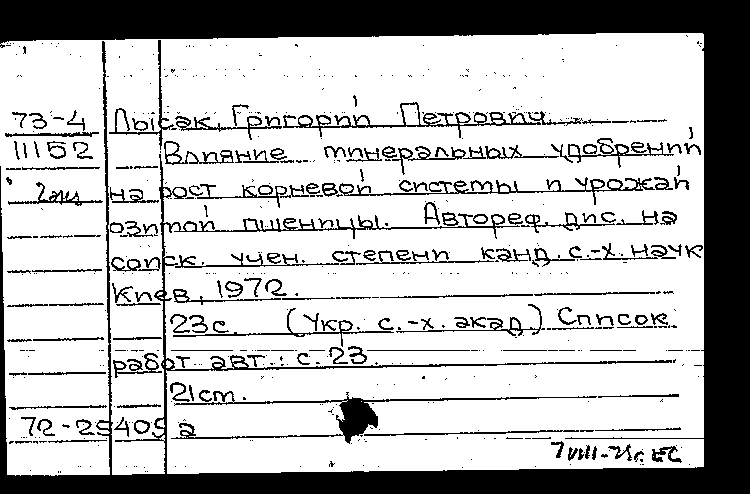 73-4 Лысак, Григорий Петрович.
11152 Влияние минеральных удобрений
2 экз на рост корневой системы и урожай
озимой пшеницы. Автореф. дис. на
соиск. учен. степени канд. с.-х. наук
Киев, 1972.
23с. (Укр. с.-х. акад.) Список
работ авт.: с. 23
21 cm.
72-25409 а